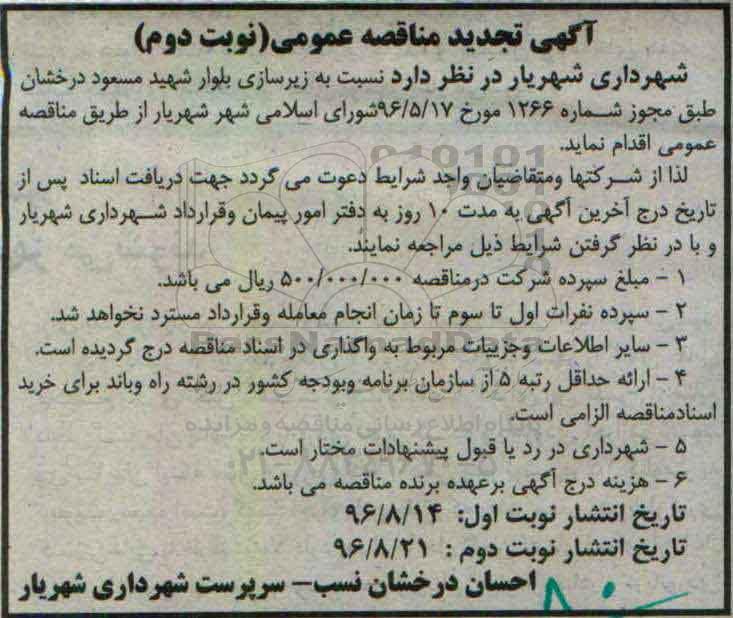 آگهی تجدید مناقصه عمومی(نوبت دوم)
شهرداری شهریار در نظر دارد نسبت به زیرسازی بلوار شهید مسعود درخشان
طبق مجوز شماره ۱۲۶۶ مورخ ۹۶/۵/۱۷شورای اسلامی شهر شهریار از طریق مناقصه
عمومی اقدام نماید.
لذا از شرکتها ومتقاضیان واجد شرایط دعوت می گردد جهت دریافت اسناد پس از
تاریخ درج آخرین آگهی به مدت ۱۰ روز به دفتر امور پیمان وقرارداد شهرداری شهریار
و با در نظر گرفتن شرایط ذیل مراجعه نمایند.
۱ - مبلغ سپرده شرکت درمناقصه ۵۰۰/۰۰۰/۰۰۰ ریال می باشد.
۲ - سپرده نفرات اول تا سوم تا زمان انجام معامله وقرارداد مسترد نخواهد شد.
۳ - سایر اطلاعات وجزییات مربوط به واگذاری در اسناد مناقصه درج گردیده است.
۴ - ارائه حداقل رتبه ۵ از سازمان برنامه وبودجه کشور در رشته راه وباند برای خرید
اسنادمناقصه الزامی است.
۵ - شهرداری در رد یا قبول پیشنهادات مختار است.
۶ - هزینه درج آگهی برعهده برنده مناقصه می باشد.
تاریخ انتشار نوبت اول: ۹۶/۸/۱۴
تاریخ انتشار نوبت دوم : ۹۶/۸/۲۱
احسان درخشان نسب- سرپرست شهرداری شهریار